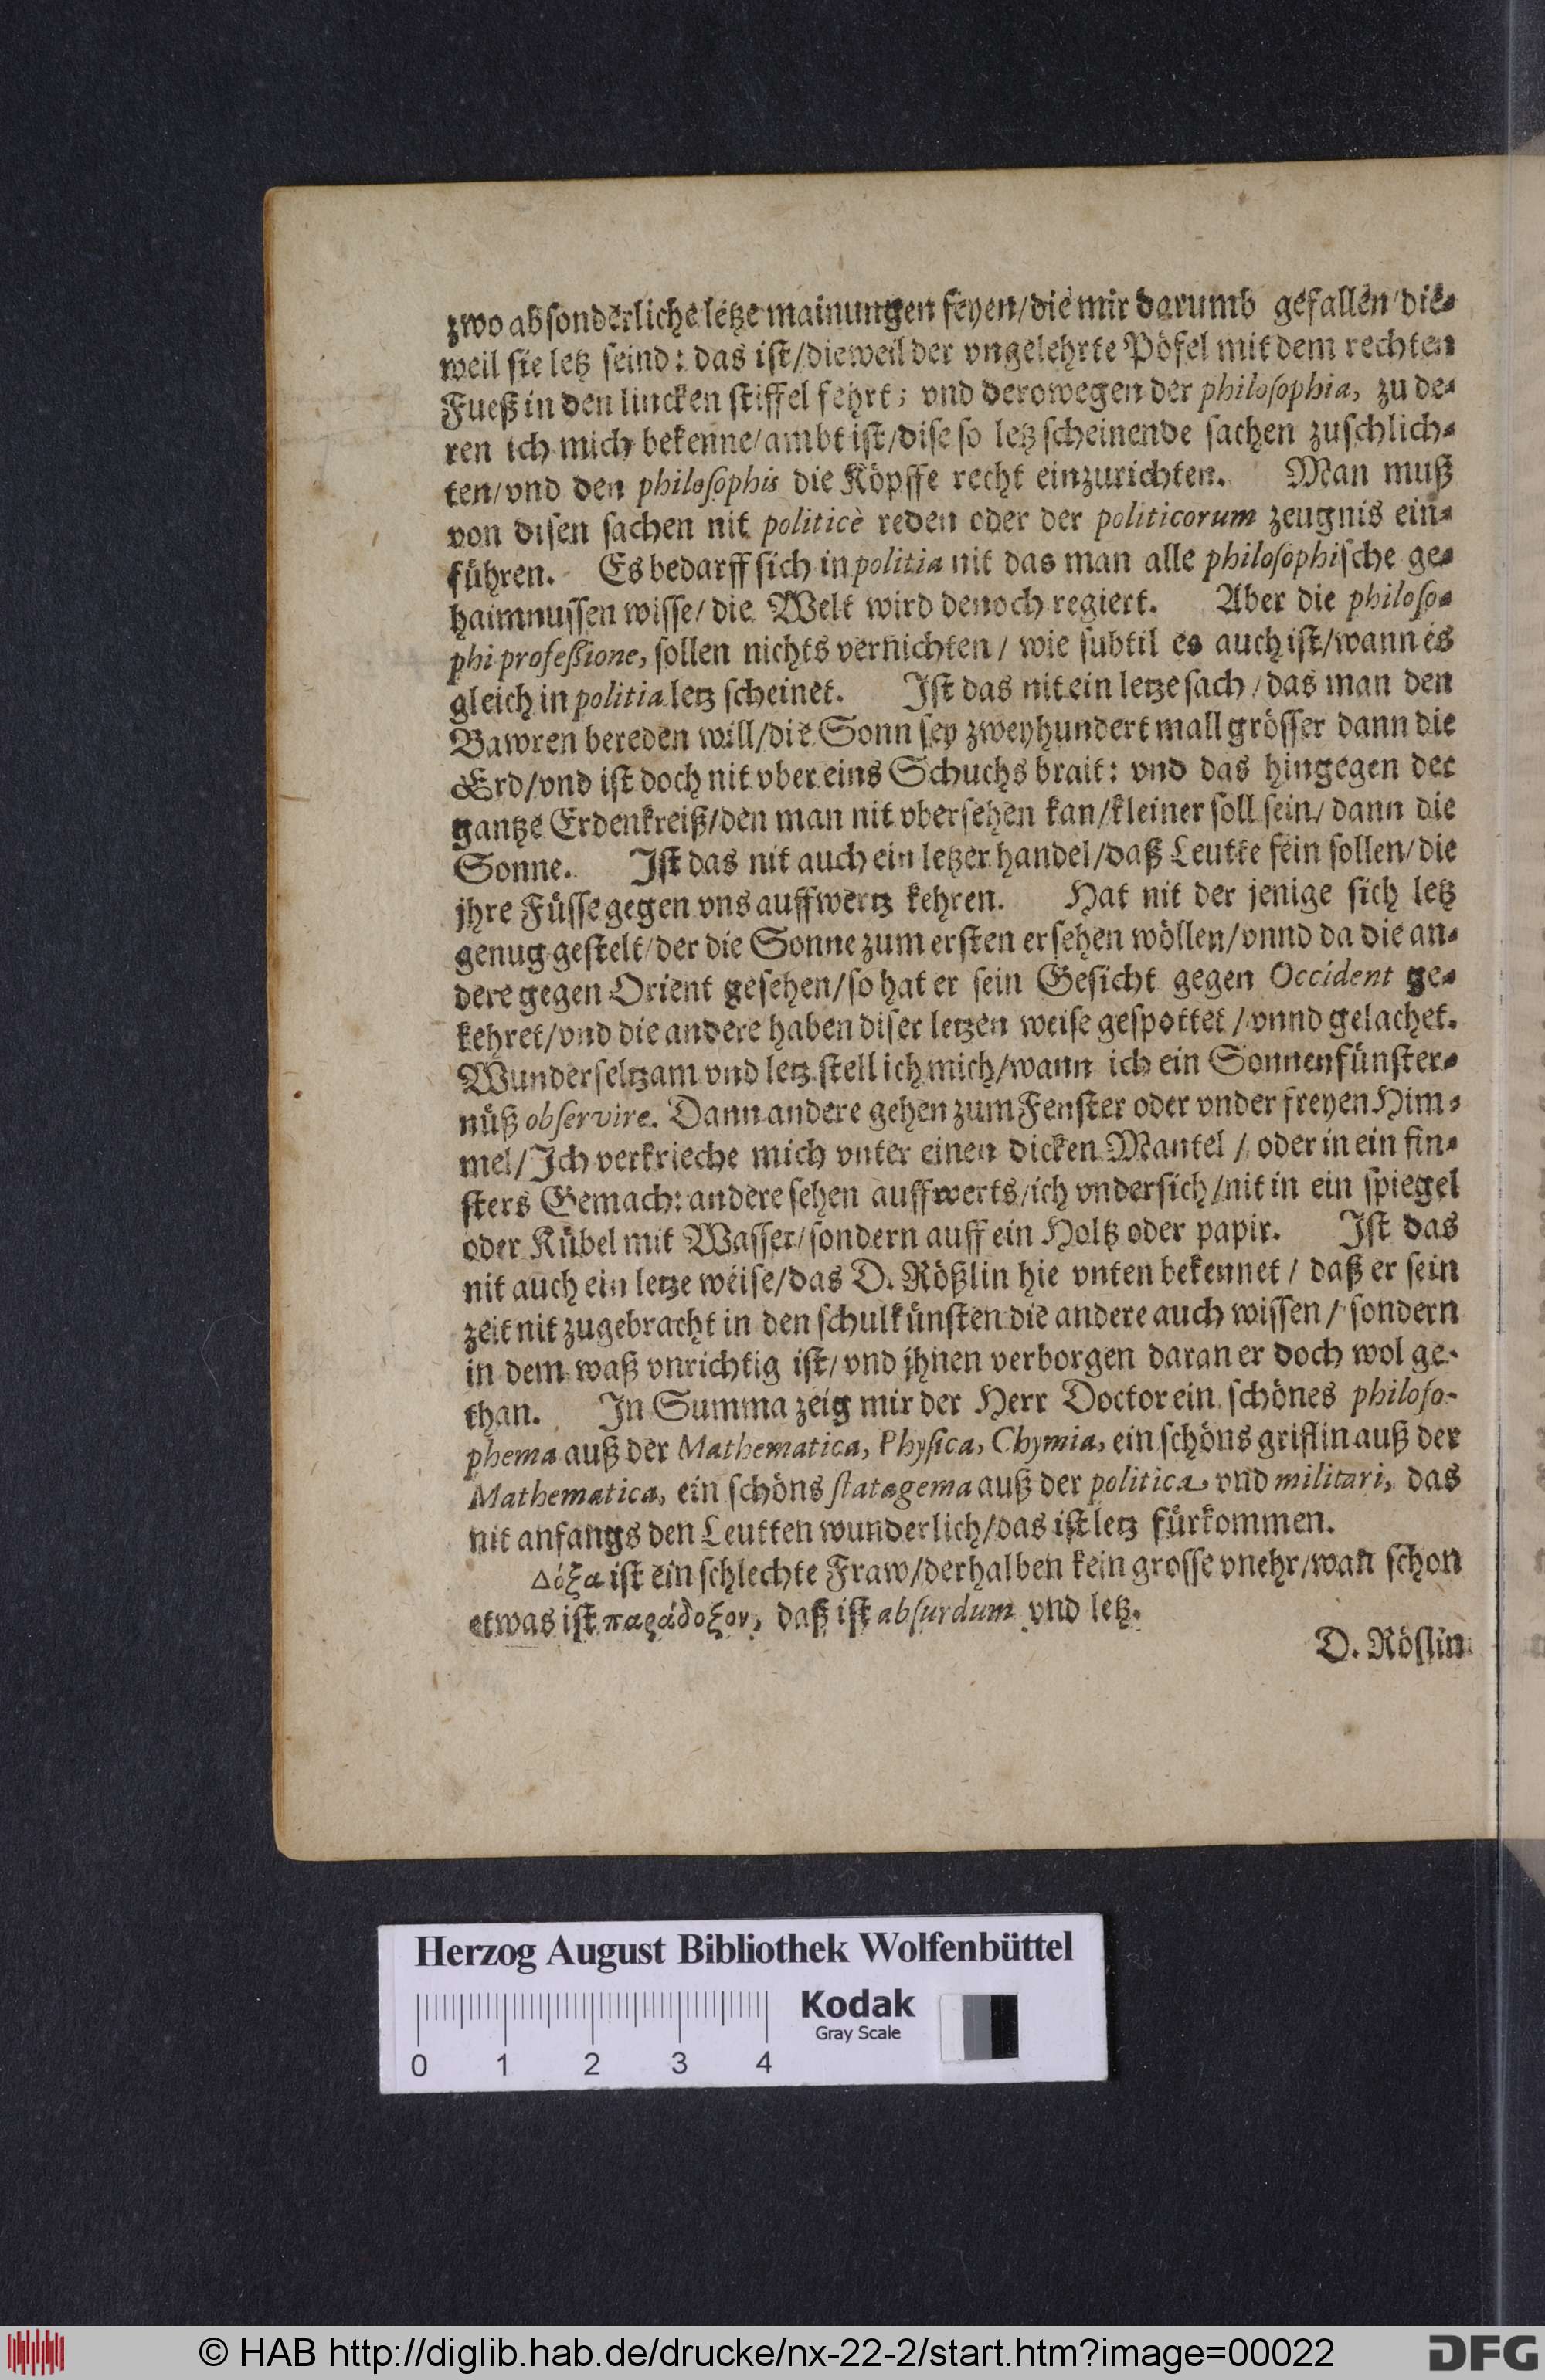 zwo absonderliche letze mainungen seyen/die mir darumb gefallen/die-
weil sie letz seind: das ist/dieweil der vngelehrte Pöfel mit dem rechten
Fueß in den lincken stiffel fehrt; vnd derowegen der philosophia, zu de-
ren ich mich bekenne/ambt ist/dise so letz scheinende sachen zuschlich-
ten/vnd den philosophis die Köpffe recht einzurichten. Man muß
von disen sachen nit politicè reden oder der politicorum zeugnis ein-
führen. Es bedarff sich in politia nit das man alle philosophische ge-
haimnussen wisse/die Welt wird denoch regiert. Aber die philoso-
phi professione, sollen nichts vernichten/ wie subtil es auch ist/wann es
gleich in politia letz scheinet. Ist das nit ein letze sach/das man den
Bawren bereden will/die Sonn sey zweyhundert mall grösser dann die
Erd/vnd ist doch nit vber eins Schuchs brait: vnd das hingegen der
gantze Erdenkreiß/den man nit vbersehen kan/kleiner soll sein/dann die
Sonne. Ist das nit auch ein letzer handel/daß Leutte sein sollen/die
jhre Füsse gegen vns auffwertz kehren. Hat nit der jenige sich letz
genug gestelt/der die Sonne zum ersten ersehen wöllen/vnnd da die an-
dere gegen Orient gesehen/so hat er sein Gesicht gegen Occident ge-
kehret/vnd die andere haben diser letzen weise gespottet/vnnd gelachet.
Wunderseltzam vnd letz stell ich mich/wann ich ein Sonnenfünster-
nüß observire. Dann andere gehen zum Fenster oder vnder freyen Him-
mel/Ich verkrieche mich vnter einen dicken Mantel/ oder in ein fin-
sters Gemach: andere sehen auffwerts/ich vndersich/nit in ein spiegel
oder Kübel mit Wasser/sondern auff ein Holtz oder papir. Ist das
nit auch ein letze weise/das D. Rößlin hie vnten bekennet/ daß er sein
zeit nit zugebracht in den schulkünsten die andere auch wissen/ sondern
in dem waß vnrichtig ist/vnd jhnen verborgen daran er doch wol ge-
than. In Summa zeig mir der Herr Doctor ein schönes philoso-
phema auß der Mathematica, Physica, Chymia, ein schöns griflin auß der
Mathematica, ein schöns statagema auß der politica, vnd militari, das
nit anfangs den Leutten wunderlich/das ist letz fürkommen.
Δόξα ist ein schlechte Fraw/derhalben kein grosse vnehr/wañ schon
etwas ist παράδοξον, daß ist absurdum vnd letz.
D. Röslin
Herzog August Bibliothek Wolfenbüttel
Kodak
Gray Scale
0 1 2 3 4
© HAB http://diglib.hab.de/drucke/nx-22-2/start.htm?image=00022
DFG